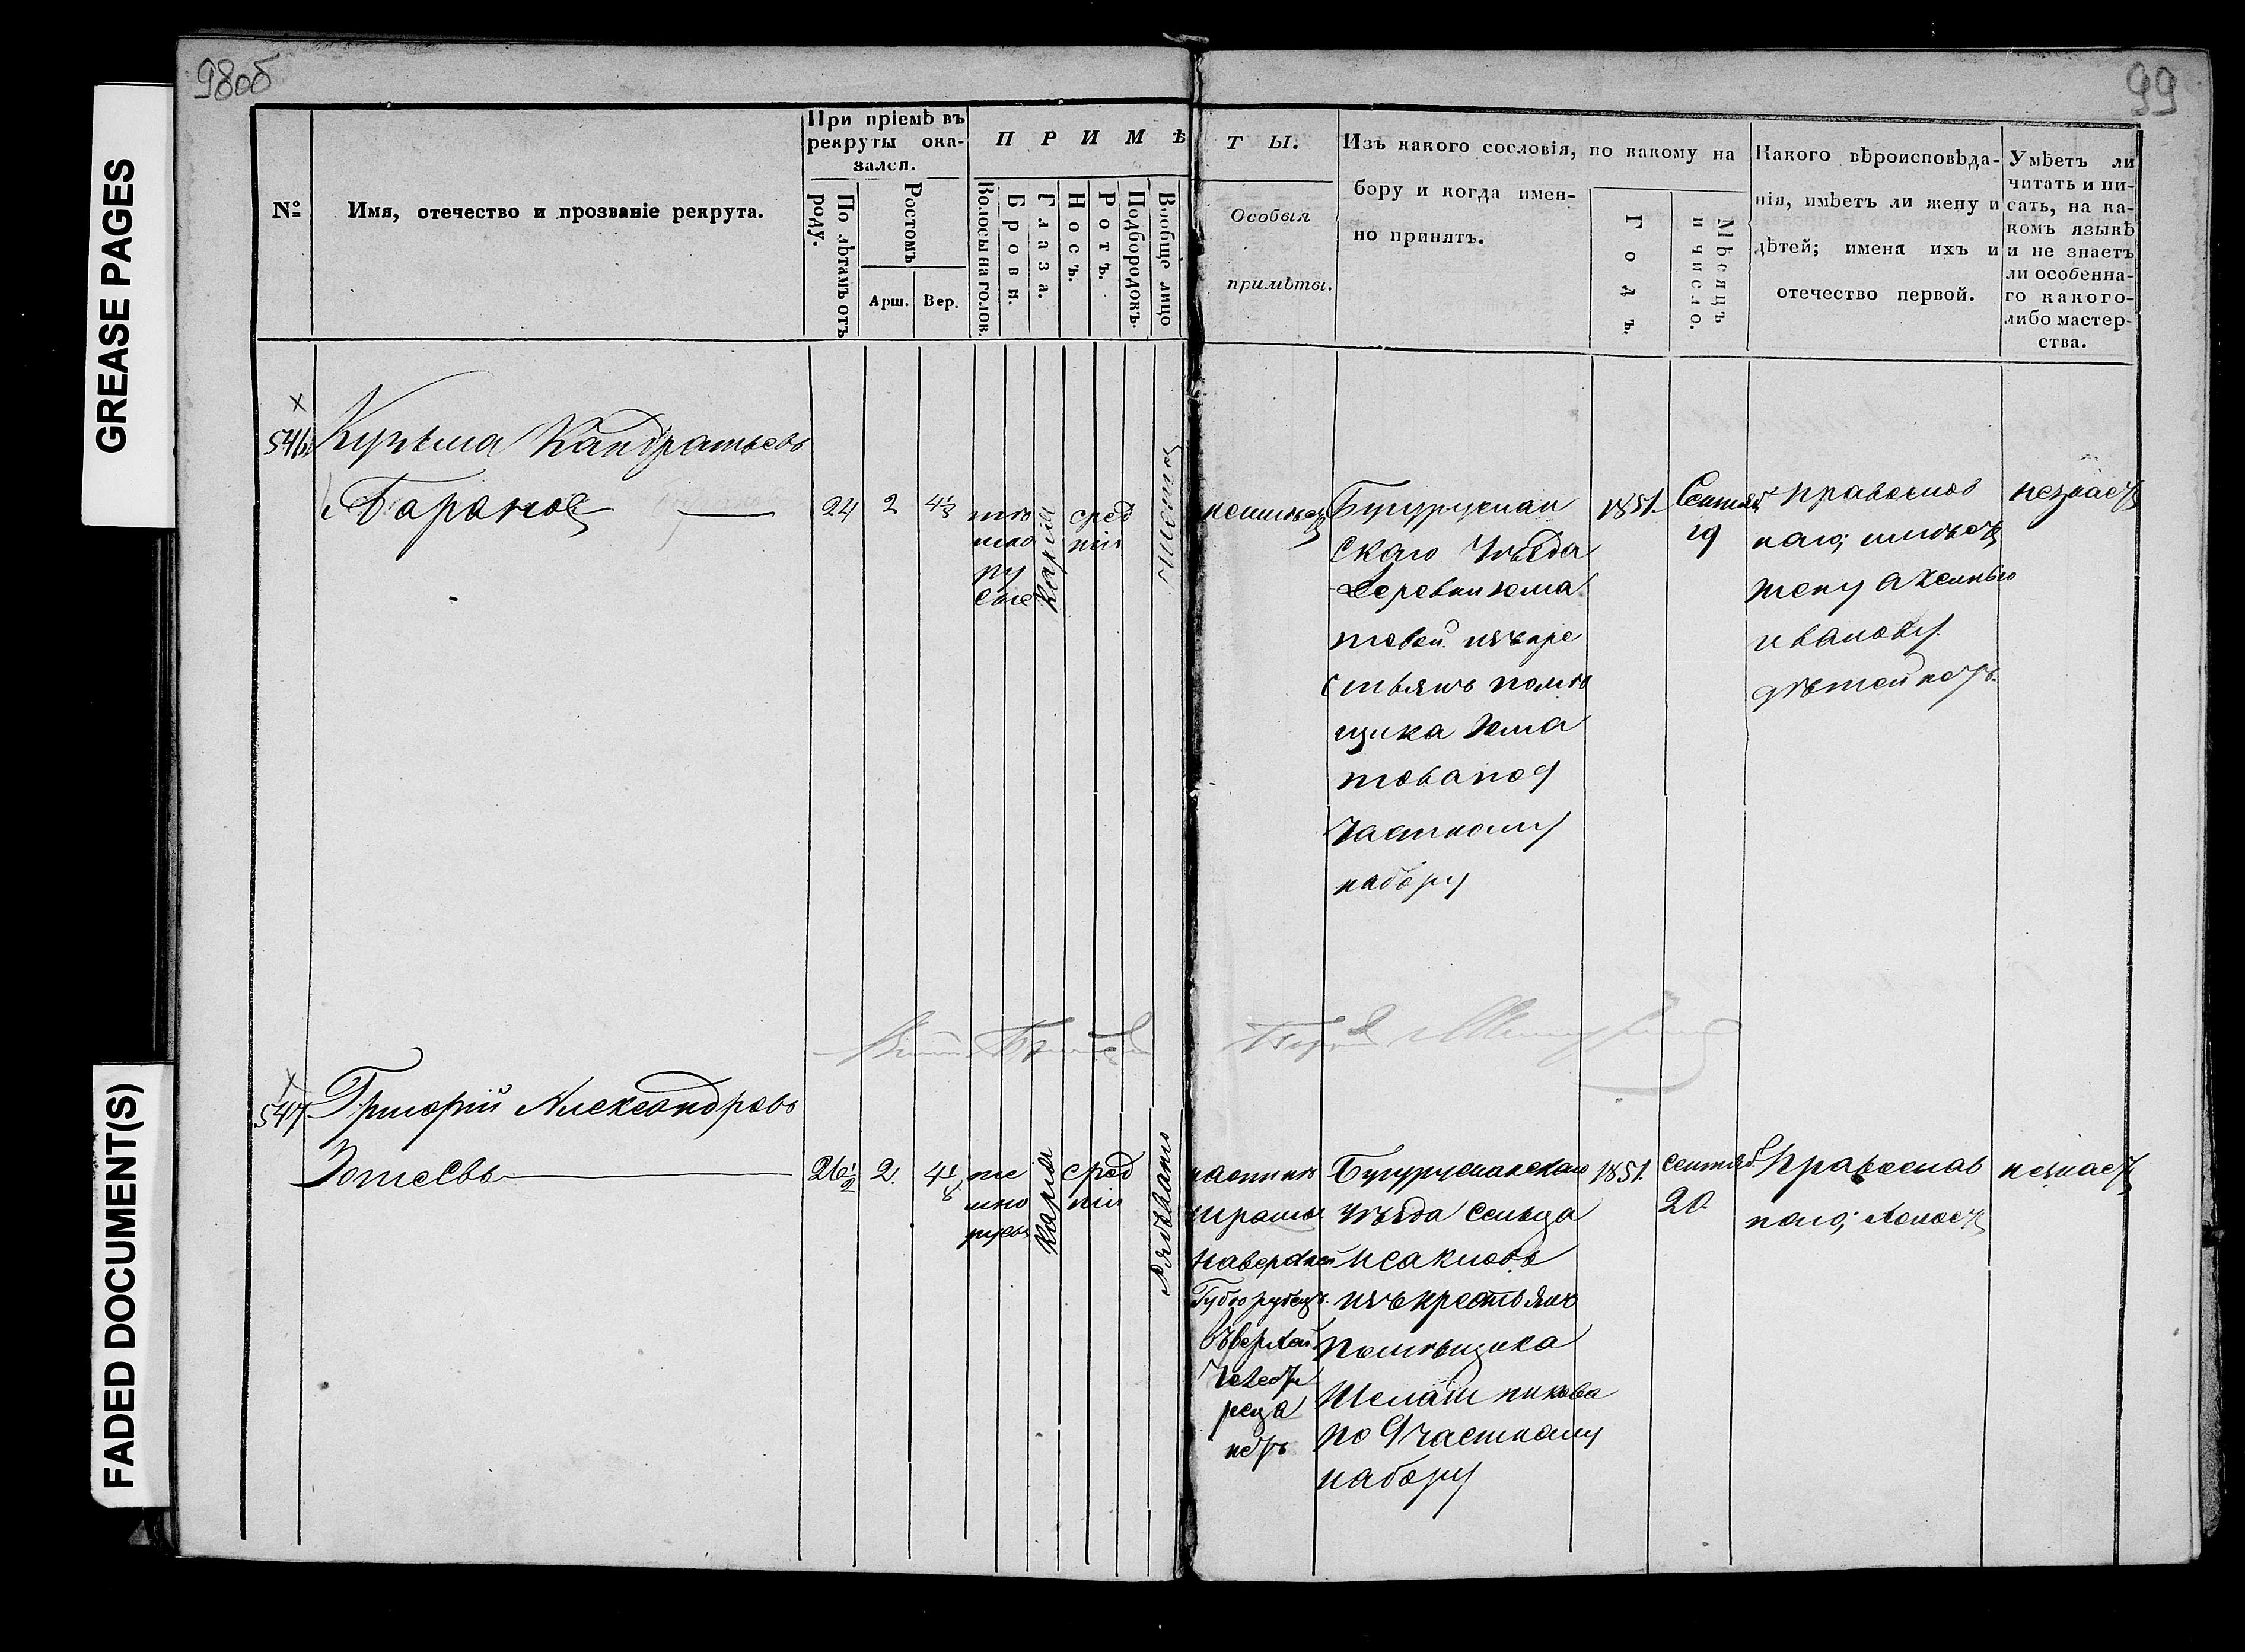 GREASE PAGES
FADED DOCUMENT(S)
98об
99
№
Имя, отечество и прозваніе рекрута.
При пріемѣ въ
рекруты ока-
зался.
По лѣтамъ отъ
роду.
Ростомъ
Арш.
Вер.
ПРИМѢ
Волосы на голов.
Брови.
Глаза.
Носъ.
Ротъ.
Подбородокъ.
Вообще лицо
ТЫ.
Особыя
примѣты.
Изъ какого сословія, по какому на
бору и когда имен-
но принятъ.
Годъ.
Мѣсяцъ
и число.
Какого вѣроисповѣда-
нія, имѣетъ ли жену и
дѣтей; имена ихъ и
отечество первой.
Умѣетъ ли
читать и пи-
сать, на ка-
комъ языкѣ
и не знаетъ
ли особенна-
го какого-
либо мастер-
ства.
546
Кузьма Кандратьевъ
Барановъ
24
2
тѣ
мно
ру
сые
кария
сред
ніи
чистое
неимѣетъ
Бугуруслан
скаго Уѣзда
Деревни юма
товой изъ кре
стьянъ помѣ
щика Юма
това по 9
Частному
набору
1851.
Сентяб
19
Православ
наго, имѣетъ
жену Аксинью
иванову
дѣтей нѣтъ.
незнаетъ
547
Григорій Александровъ
Зотевъ
26½
2.
4⅛
те
мно
русые
кария
сред
ніи
Рябовато
на верхней
Губѣ рубецъ.
Бугурусланскаго
Уѣзда Сельца
Исаклов
изъ крестьянъ
Помѣщика
Шелашникова
по 9 частному
набору
1851.
сентяб.
20
Православ
наго, холостъ
незнаетъ